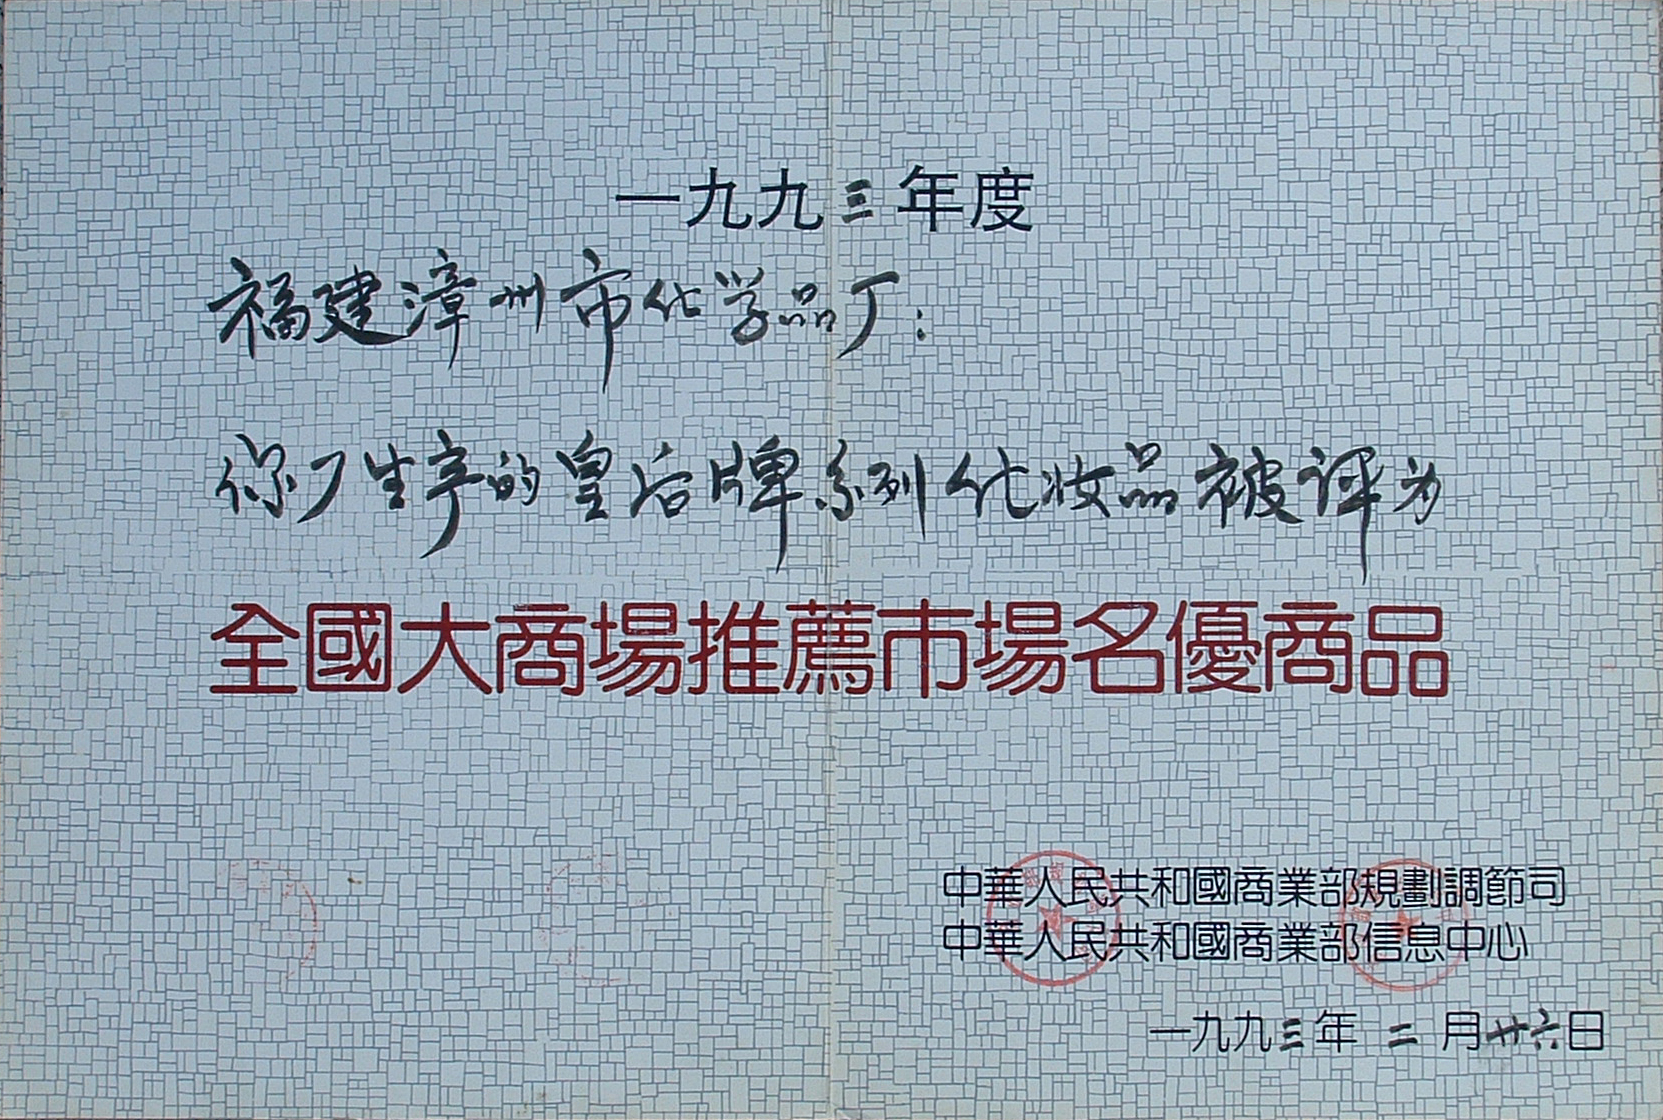 一九九三年度
福建漳州市化学品厂:
你厂生产的皇后牌系列化妆品被评为
全國大商場推薦市場名優商品
中華人民共和國商業部規劃調節司
中華人民共和國商業部信息中心
一九九三年 二 月廿六日